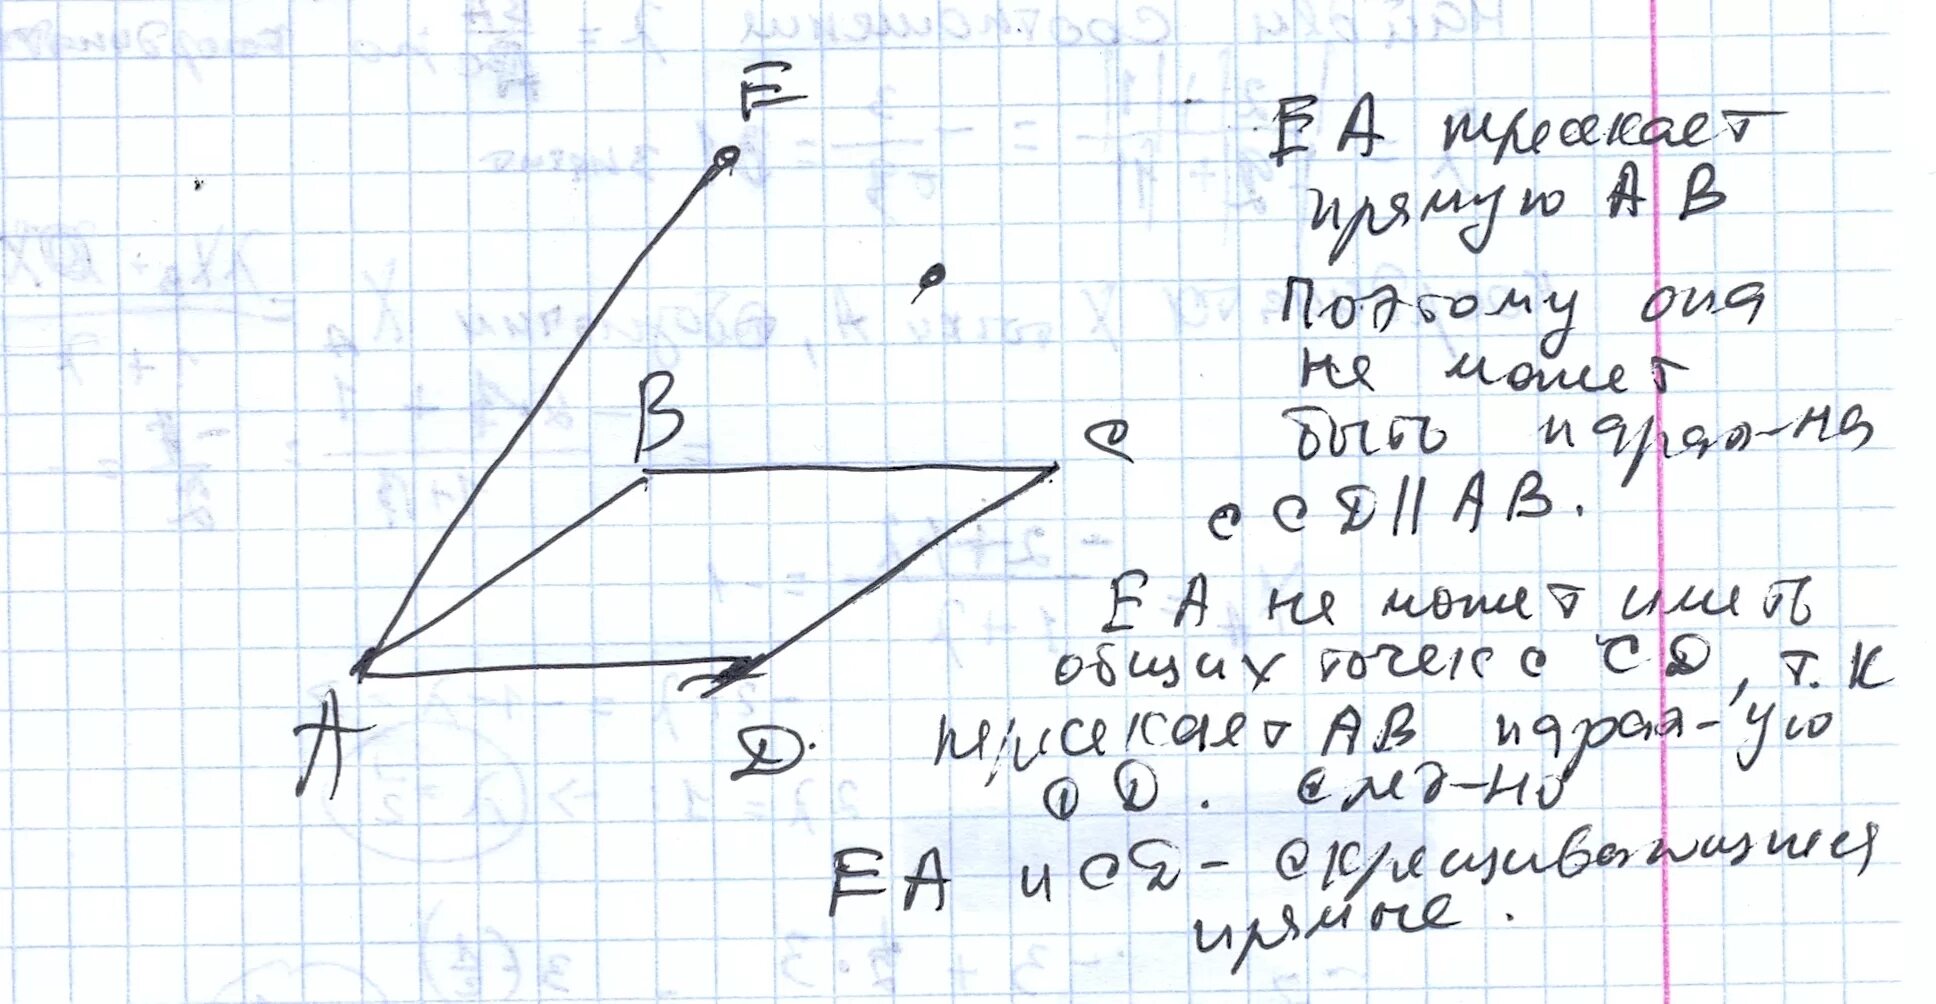 E
B
C
A
D
EA пересекает
прямую AB
Поэтому она
не может
быть парал-на
с CD || AB.
EA не может иметь
общих точек с CD, т.к
пересекает AB парал-ую
CD. след-но
EA и CD - скрещивающиеся
прямые.